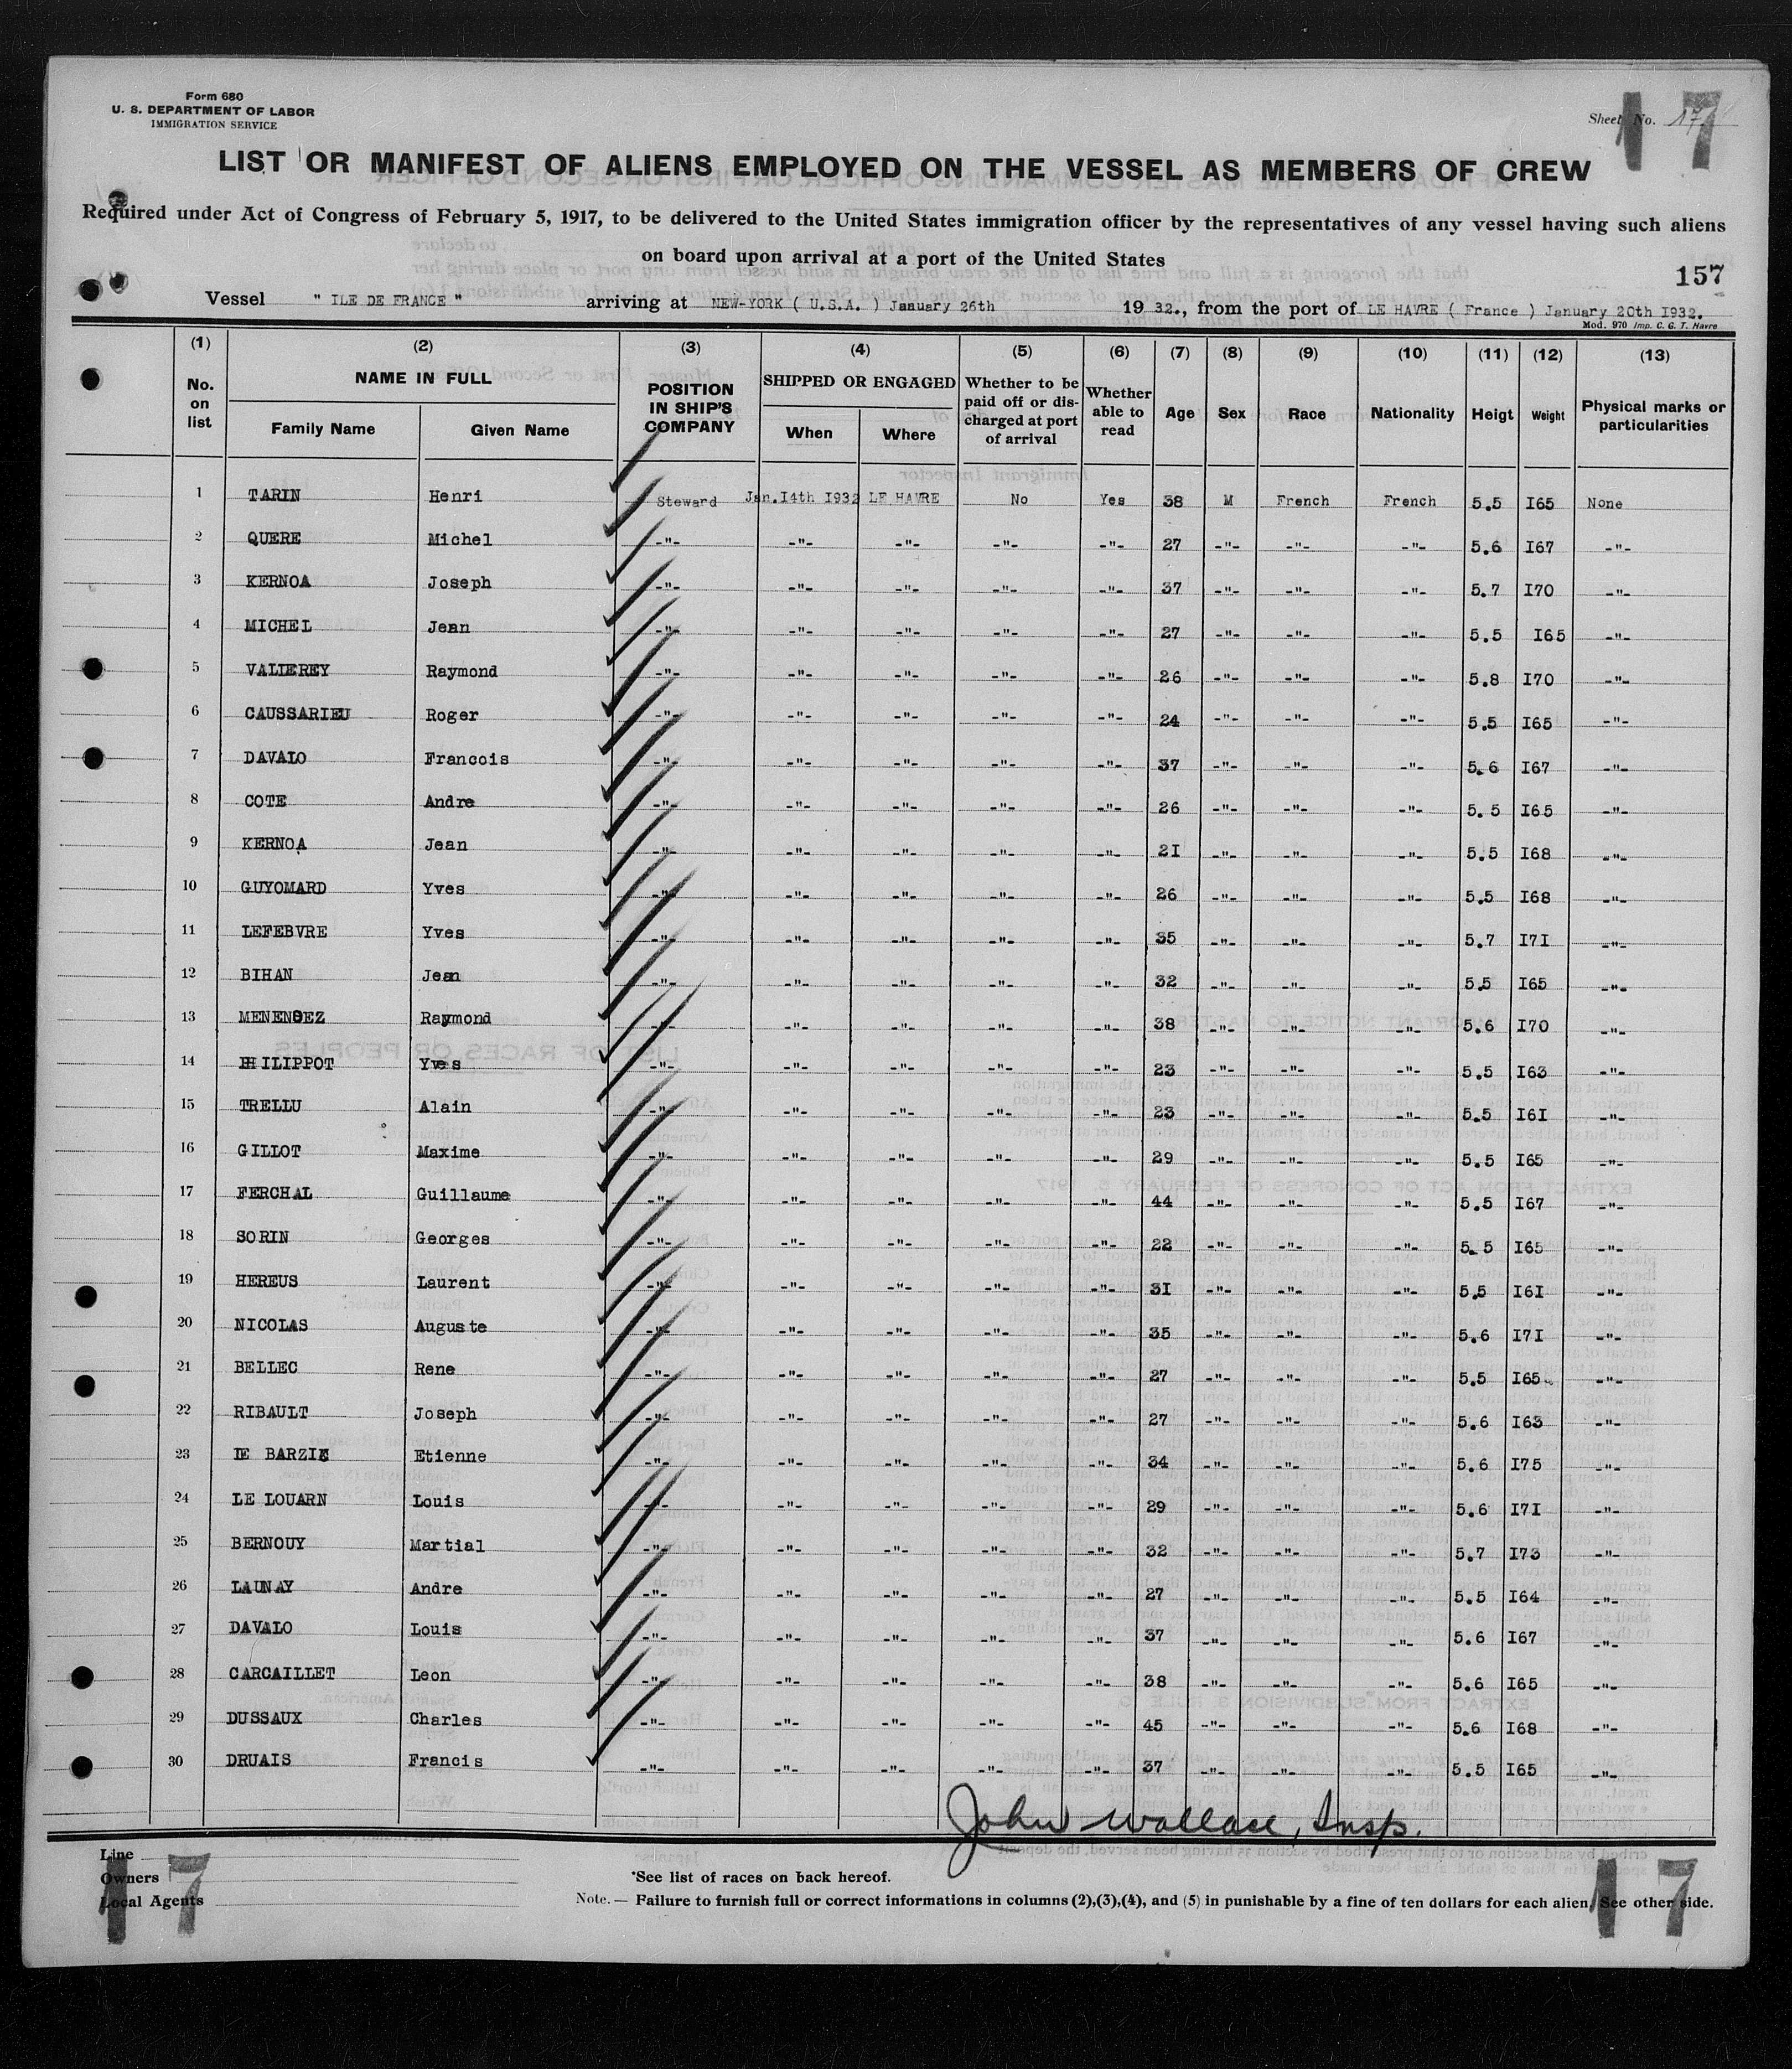 Form 680
U. S. DEPARTMENT OF LABOR
IMMIGRATION SERVICE
Sheet No. 17
17
LIST OR MANIFEST OF ALIENS EMPLOYED ON THE VESSEL AS MEMBERS OF CREW
Required under Act of Congress of February 5, 1917, to be delivered to the United States immigration officer by the representatives of any vessel having such aliens
on board upon arrival at a port of the United States
157
Vessel " ILE DE FRANCE " arriving at NEW-YORK ( U.S.A. ) January 26th 19 32., from the port of LE HAVRE ( France ) January 20th I932.
Mod. 970 Imp. C. G. T. Havre
(1) (2) (3) (4) (5) (6) (7) (8) (9) (10) (11) (12) (13)
No. on list NAME IN FULL Family Name Given Name POSITION IN SHIP'S COMPANY SHIPPED OR ENGAGED When Where Whether to be paid off or discharged at port of arrival Whether able to read Age Sex Race Nationality Heigt Weight Physical marks or particularities
1 TARIN Henri Steward Jan.I4th I932 LE HAVRE No Yes 38 M French French 5.5 I65 None
2 QUERE Michel -"- -"- -"- -"- -"- 27 -"- -"- -"- 5.6 I67 -"-
3 KERNOA Joseph -"- -"- -"- -"- -"- 37 -"- -"- -"- 5.7 I70 -"-
4 MICHEL Jean -"- -"- -"- -"- -"- 27 -"- -"- -"- 5.5 I65 -"-
5 VALIEREY Raymond -"- -"- -"- -"- -"- 26 -"- -"- -"- 5.8 I70 -"-
6 CAUSSARIEU Roger -"- -"- -"- -"- -"- 24 -"- -"- -"- 5.5 I65 -"-
7 DAVALO Francois -"- -"- -"- -"- -"- 37 -"- -"- -"- 5.6 I67 -"-
8 COTE Andre -"- -"- -"- -"- -"- 26 -"- -"- -"- 5.5 I65 -"-
9 KERNOA Jean -"- -"- -"- -"- -"- 2I -"- -"- -"- 5.5 I68 -"-
10 GUYOMARD Yves -"- -"- -"- -"- -"- 26 -"- -"- -"- 5.5 I68 -"-
11 LEFEBVRE Yves -"- -"- -"- -"- -"- 35 -"- -"- -"- 5.7 I7I -"-
12 BIHAN Jean -"- -"- -"- -"- -"- 32 -"- -"- -"- 5.5 I65 -"-
13 Raymond -"- -"- -"- -"- -"- 38 -"- -"- -"- 5.6 I70 -"-
14 PHILIPPOT Yves -"- -"- -"- -"- -"- 23 -"- -"- -"- 5.5 I63 -"-
15 TRELLU Alain -"- -"- -"- -"- -"- 23 -"- -"- -"- 5.5 I6I -"-
16 GILLOT Maxime -"- -"- -"- -"- -"- 29 -"- -"- -"- 5.5 I65 -"-
17 FERCHAL Guillaume -"- -"- -"- -"- -"- 44 -"- -"- -"- 5.5 I67 -"-
18 SORIN Georges -"- -"- -"- -"- -"- 22 -"- -"- -"- 5.5 I65 -"-
19 HEREUS Laurent -"- -"- -"- -"- -"- 3I -"- -"- -"- 5.5 I6I -"-
20 NICOLAS Auguste -"- -"- -"- -"- -"- 35 -"- -"- -"- 5.6 I7I -"-
21 BELLEC Rene -"- -"- -"- -"- -"- 27 -"- -"- -"- 5.5 I65 -"-
22 RIBAULT Joseph -"- -"- -"- -"- -"- 27 -"- -"- -"- 5.6 I63 -"-
23 LE Etienne -"- -"- -"- -"- -"- 34 -"- -"- -"- 5.6 I75 -"-
24 LE LOUARN Louis -"- -"- -"- -"- -"- 29 -"- -"- -"- 5.6 I7I -"-
25 BERNOUY Martial -"- -"- -"- -"- -"- 32 -"- -"- -"- 5.7 I73 -"-
26 LAUNAY Andre -"- -"- -"- -"- -"- 27 -"- -"- -"- 5.5 I64 -"-
27 DAVALO Louis -"- -"- -"- -"- -"- 37 -"- -"- -"- 5.6 I67 -"-
28 CARCAILLET Leon -"- -"- -"- -"- -"- 38 -"- -"- -"- 5.6 I65 -"-
29 DUSSAUX Charles -"- -"- -"- -"- -"- 45 -"- -"- -"- 5.6 I68 -"-
30 DRUAIS Francis -"- -"- -"- -"- -"- 37 -"- -"- -"- 5.5 I65 -"-
John Wallace, Insp.
Line
Owners
Local Agents
17
*See list of races on back hereof.
Note. — Failure to furnish full or correct informations in columns (2),(3),(4), and (5) in punishable by a fine of ten dollars for each alien. See other side.
17